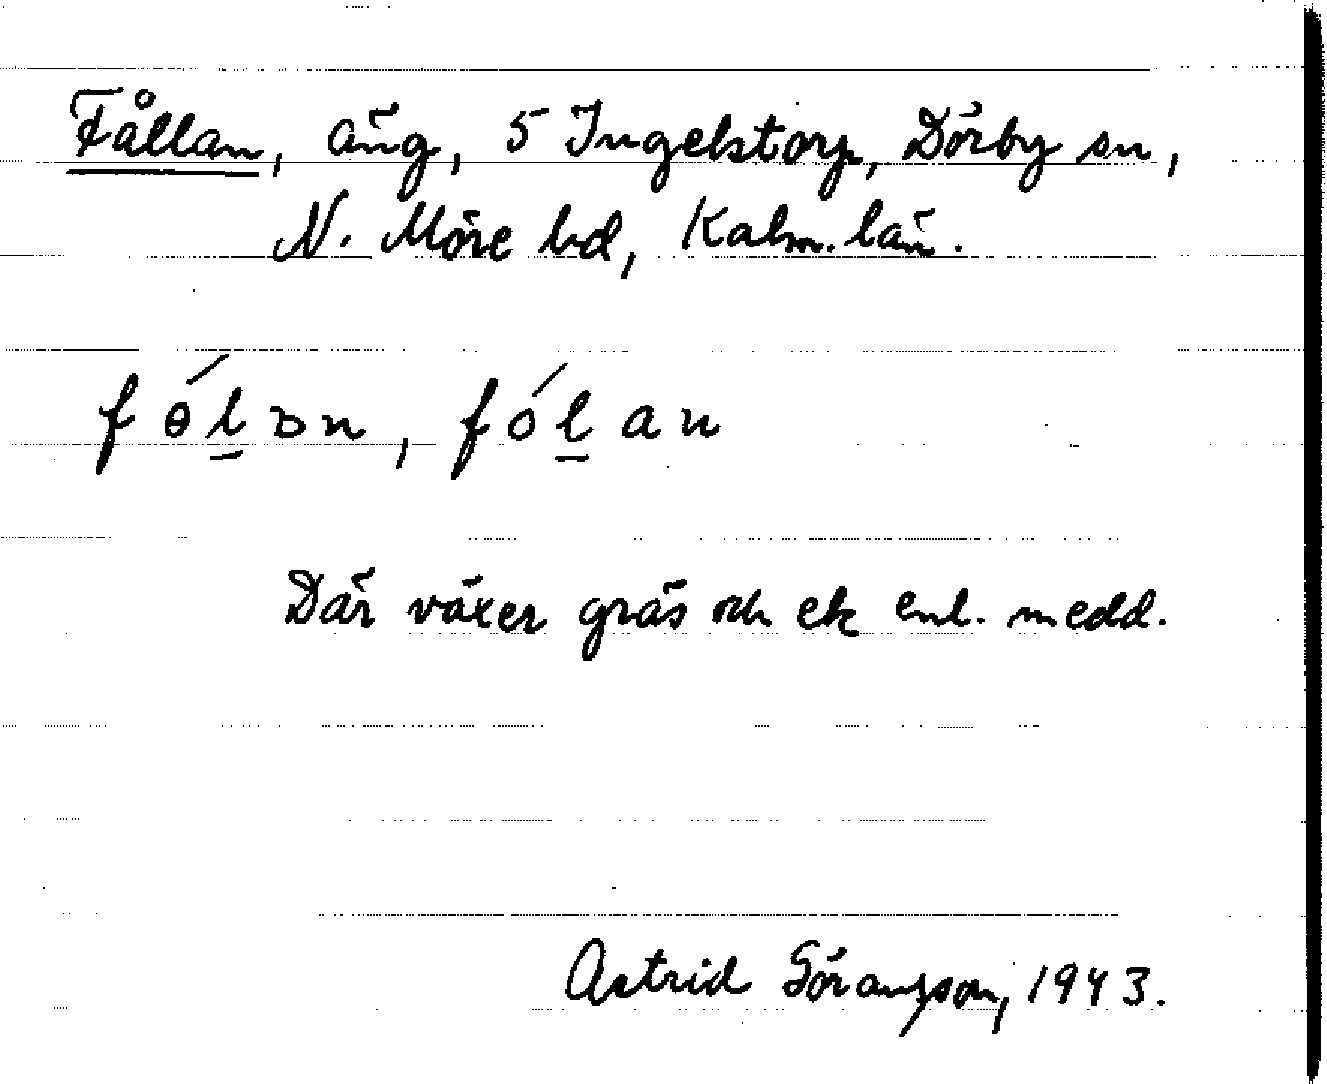 Fållan, äng, 5 Ingelstorp, Dörby sn,
N. Möre hd, Kalm. län.
fɵ́l̲ɔn, fól̲an
Där växer gräs och ek enl. medd.
Astrid Göransson, 1943.